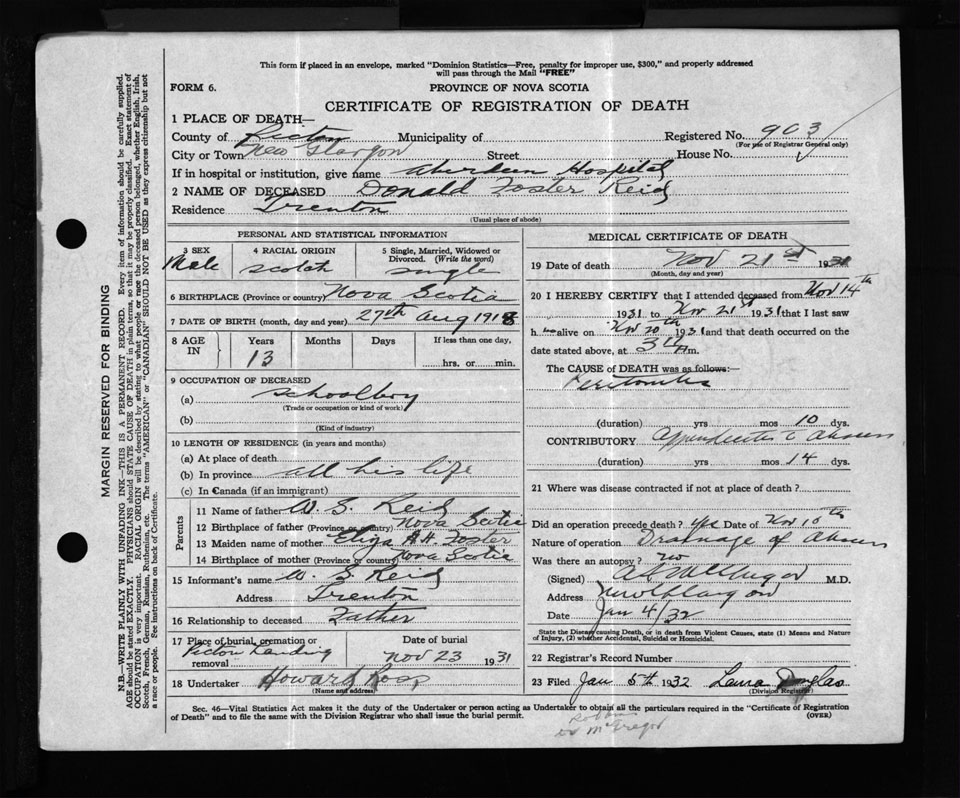 This form if placed in an envelope, marked "Dominion Statistics—Free, penalty for improper use, $300," and properly addressed
will pass through the Mail "FREE"
FORM 6.
PROVINCE OF NOVA SCOTIA
CERTIFICATE OF REGISTRATION OF DEATH
1 PLACE OF DEATH—
County of Pictou Municipality of Registered No. 903
(For use of Registrar General only)
City or Town New Glasgow Street House No.
If in hospital or institution, give name Aberdeen Hospital
2 NAME OF DECEASED Donald Foster Reid
Residence Trenton
(Usual place of abode)
PERSONAL AND STATISTICAL INFORMATION
3 SEX 4 RACIAL ORIGIN 5 Single, Married, Widowed or
Divorced. (Write the word)
Male Scotch single
6 BIRTHPLACE (Province or country) Nova Scotia
7 DATE OF BIRTH (month, day and year) 27th Aug 1918
8 AGE IN Years Months Days If less than one day,
13 hrs. or min.
9 OCCUPATION OF DECEASED
(a) schoolboy
(Trade or occupation or kind of work)
(b)
(Kind of industry)
10 LENGTH OF RESIDENCE (in years and months)
(a) At place of death
(b) In province all his life
(c) In Canada (if an immigrant)
Parents
11 Name of father W. S. Reid
12 Birthplace of father (Province or country) Nova Scotia
13 Maiden name of mother Eliza A H. Foster
14 Birthplace of mother (Province or country) Nova Scotia
15 Informant's name W. S. Reid
Address Trenton
16 Relationship to deceased Father
17 Place of burial, cremation or removal Date of burial
Pictou Landing Nov 23 1931
18 Undertaker Howard Ross
(Name and address)
MEDICAL CERTIFICATE OF DEATH
19 Date of death Nov 21st 1931
(Month, day and year)
20 I HEREBY CERTIFY that I attended deceased from Nov 14th
1931 to Nov 21st 1931 that I last saw
h alive on Nov 20th 1931 and that death occurred on
date stated above, at 3 m.
The CAUSE of DEATH was as follows:—
Peritonitis
(duration) yrs mos 10 dys.
CONTRIBUTORY Appendicitis c Abscess
(duration) yrs mos 14 dys.
21 Where was disease contracted if not at place of death?
Did an operation precede death? yes Date of Nov 15th
Nature of operation Drainage of Abscess
Was there an autopsy? no
(Signed) McGregor M.D.
Address New Glasgow
Date Jan 4/32
State the Disease causing Death, or in death from Violent Causes, state (1) Means and Nature
of Injury, (2) whether Accidental, Suicidal or Homicidal.
22 Registrar's Record Number
23 Filed Jan 5th 1932 Laura Douglas
(Division Registrar)
Sec. 46—Vital Statistics Act makes it duty of the Undertaker or person acting as Undertaker to obtain all the particulars required in the "Certificate of Registration
of Death" and to file the same with the Division Registrar who shall issue the burial permit. (OVER)
McGregor
MARGIN RESERVED FOR BINDING
N.B.—WRITE PLAINLY WITH UNFADING INK—THIS IS A PERMANENT RECORD. Every item of information should be carefully supplied.
AGE should be stated EXACTLY. PHYSICIANS should STATE CAUSE OF DEATH in plain terms, so that it may be properly classified. Exact statement of
OCCUPATION is very important. RACIAL ORIGIN will be described by stating to what people or race the deceased person belonged, whether English, Irish,
Scotch, French, German, Russian, Ruthenian, etc. The terms "AMERICAN" or "CANADIAN" SHOULD NOT BE USED as they express citizenship but not
a race or people. See instructions on back of Certificate.